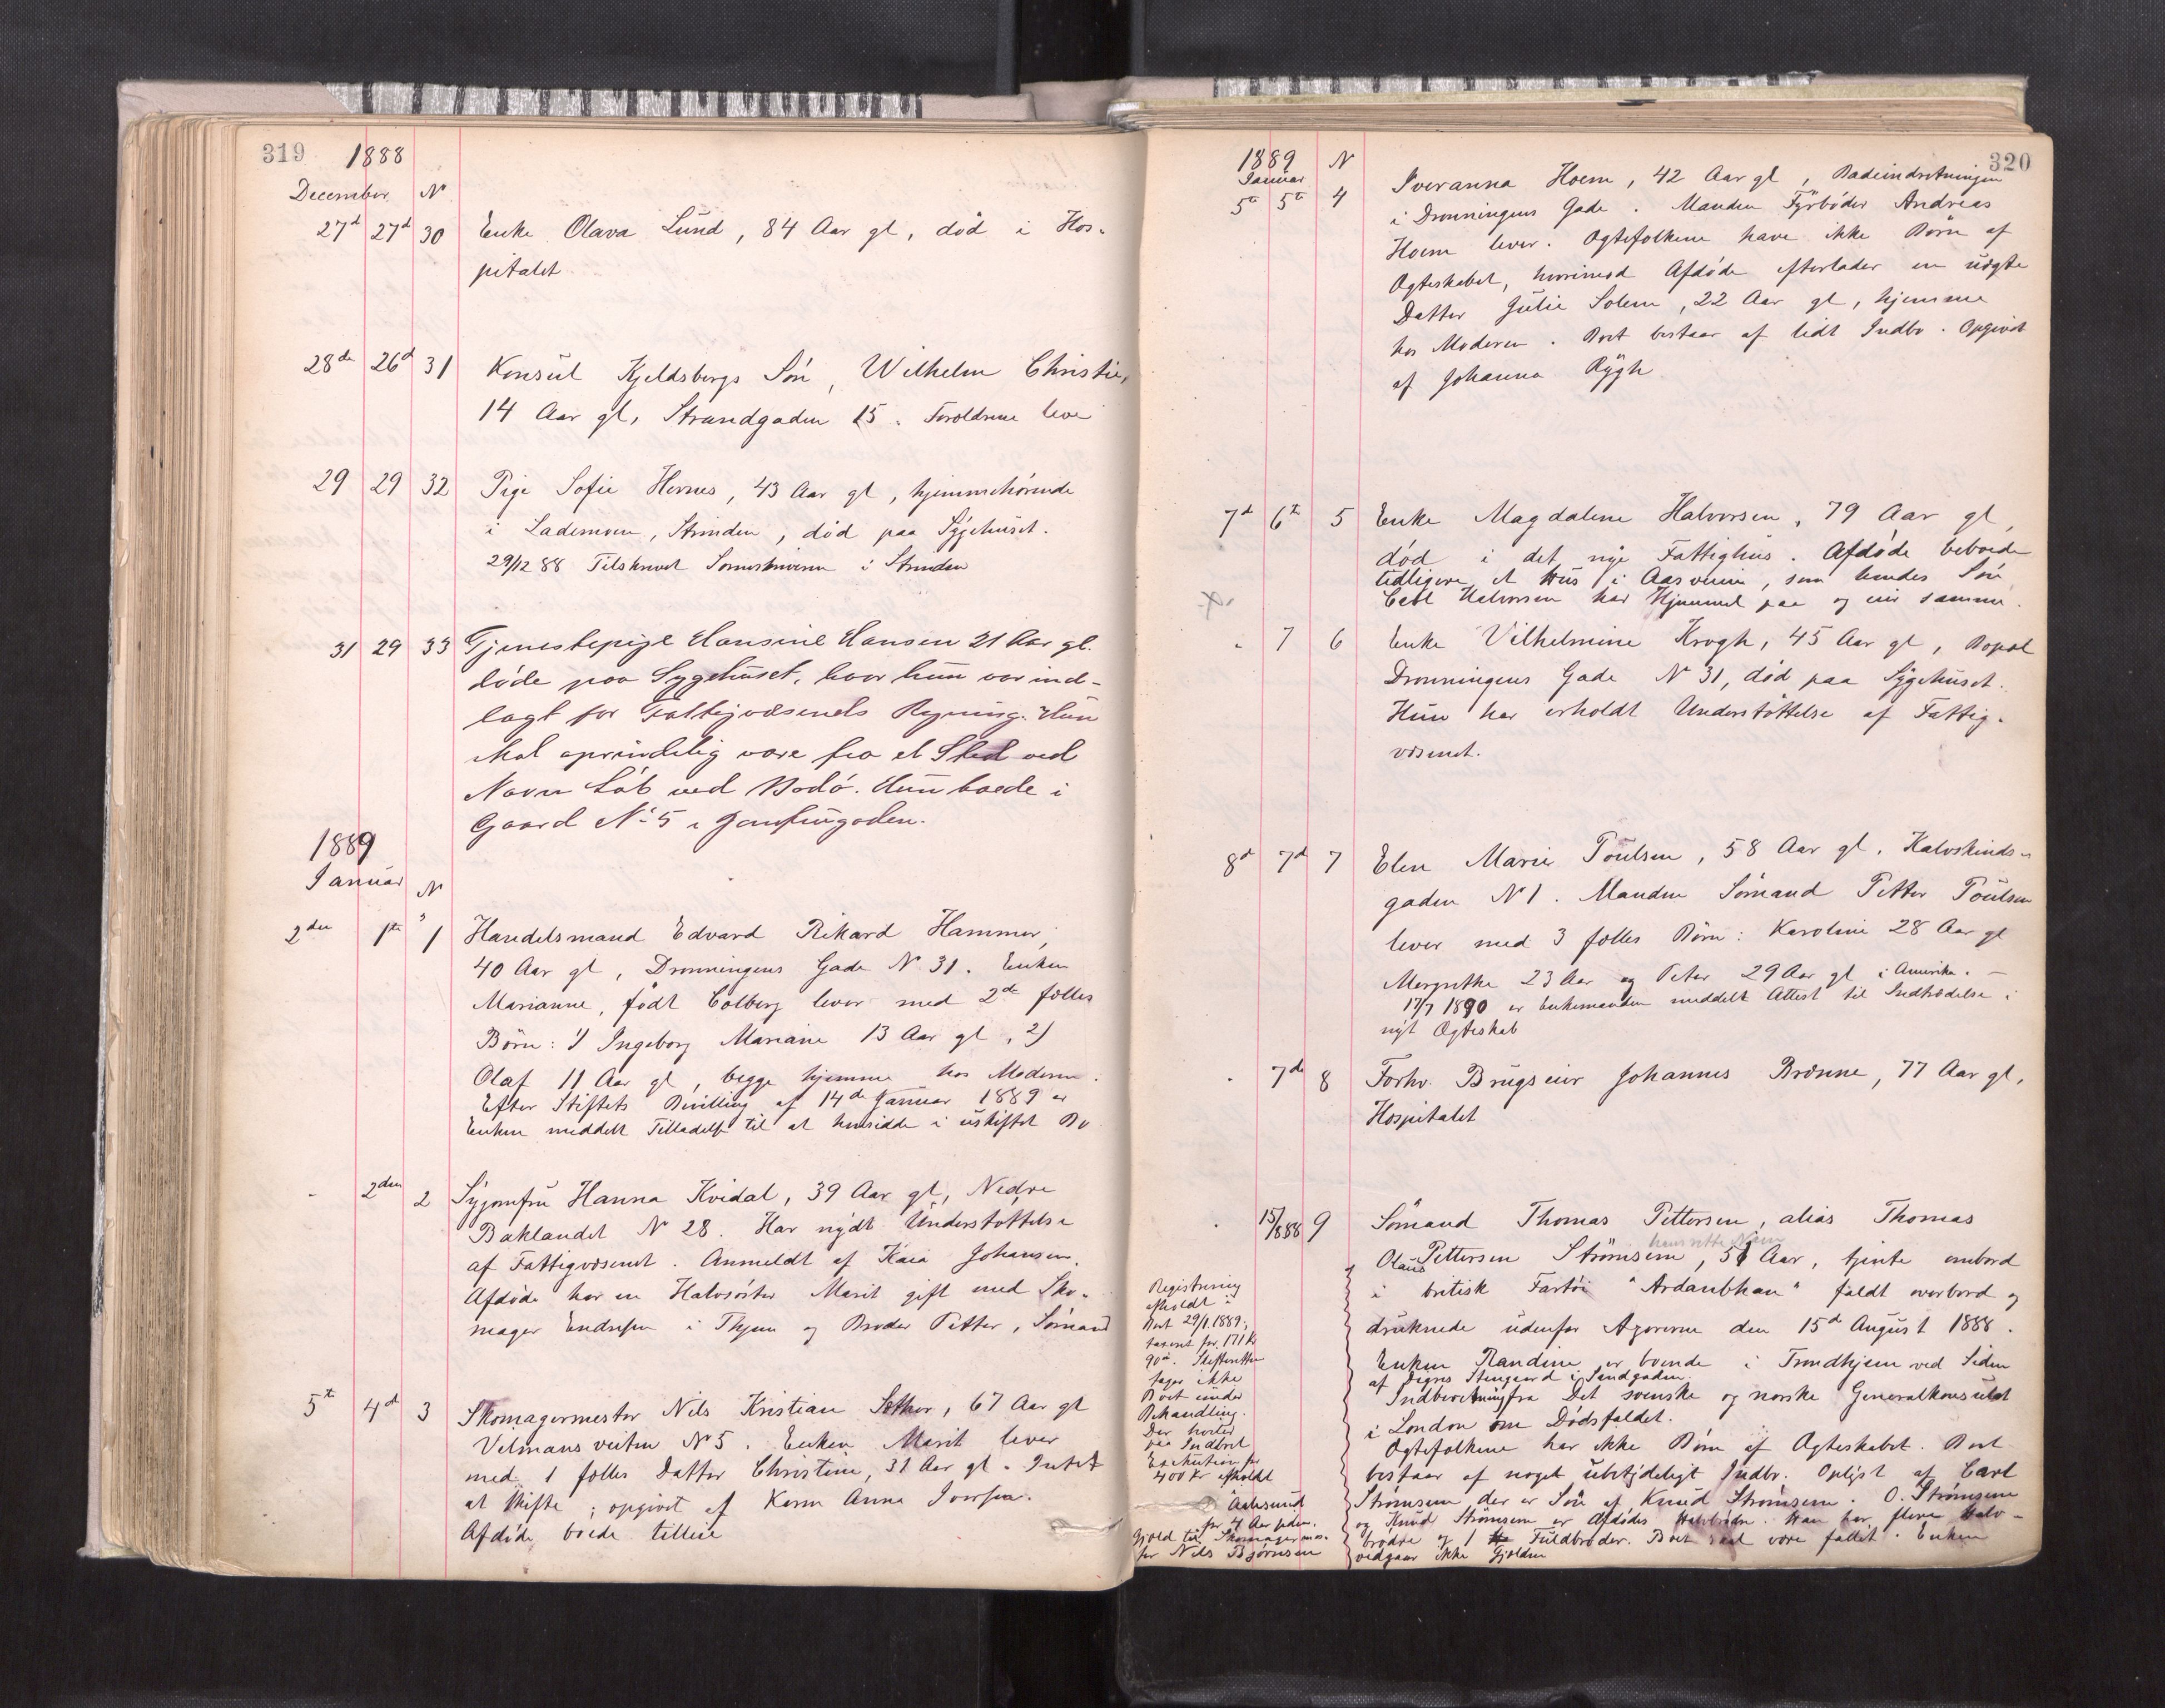 319 1888
December N
27d 27d 30 Enke Olava Lund, 84 Aar gl, død i Hos-
pitalet
28de 26d 31 Konsul Kjeldsbergs Søn, Wilhelm Christie,
14 Aar gl, Strandgaden 15. Forældrene leve
29 29 32 Pige Sofie Hernes, 43 Aar gl, hjemmehørende
i Lademoen, Strinden, død paa Sygehuset.
29/12 88 Tilskrevet Sorenskriveren i Strinden
31 29 33 Tjenestepige Hansine Hansen 21 Aar gl.
døde paa Sygehuset, hvor hun var ind-
lagt for Fattigvæsenets Regning. Hun
skal oprindelig være fra et Sted ved
Navn Løb ved Bodø. Hun boede i
Gaard No 5 i
1889
Januar N
2den 1ste 1 Handelsmand Edvard Rikard Hammer,
40 Aar gl, Dronningens Gade N 31. Enken
Marianne, født Colberg lever med 2de fælles
Børn: 1) Ingeborg Marianne 13 Aar gl, 2)
Olaf 11 Aar gl, begge hjemme hos Moderen.
Efter Stiftets Bevilling af 14de Januar 1889 er
Enken meddelt Tilladelse til at hensidde i uskiftet Bo
- 2den 2 Syjomfru Hanna Kvidal, 39 Aar gl, Nedre
Baklandet N 28. Har nydt Understøttelse
af Fattigvæsenet. Anmeldt af Kaia Johansen.
Afdøde har en Halvsøster Marit gift med Sko-
mager Endresen i Thjem og Broder Petter, Sømand
5te 4d 3 Skomagermester Nils Kristian Sæther, 67 Aar gl
Velmansveiten No 5. Enken Marit lever
med 1 fælles Datter Christine, 31 Aar gl. Intet
at skifte; opgivet af Karen Anna Iversen.
Afdøde boede tilleie
320
1889 N
Januar
5te 5te 4 Iveranna Hoem, 42 Aar gl, Badeindretningen
i Dronningens Gade. Manden Fyrbøder Andreas
Hoem lever. Ægtefolkene have ikke Børn af
Ægteskabet, hvorimod Afdøde efterlader en uægte
Datter Julie Solem, 22 Aar gl, hjemme
hos Moderen. Boet bestaar af lidt Indbo. Opgivet
af Johanna Rygh
7d 6te 5 Enke Magdalene Halvorsen, 79 Aar gl,
død i det nye Fattighus. Afdøde beboede
tidligere et Hus i Aasveien, som hendes Søn
Carl Halvorsen har Hjemmel paa og eier samme.
" 7 6 Enke Vilhelmine Krogh, 45 Aar gl, Bopæl
Dronningens Gade N 31, død paa Sygehuset.
Hun har erholdt Understøttelse af Fattig-
væsenet.
8d 7d 7 Elen Marie Poulsen, 58 Aar gl. Kalvskinds-
gaden N 1. Manden Sømand Petter Poulsen
lever med 3 fælles Børn: Karoline 28 Aar gl
Margrethe 23 Aar og Peter 29 Aar gl i Amerika. —
17/7 1890 er Enkemanden meddelt Attest til Indtrædelse i
nyt Ægteskab
" 7de 8 Forhv. Brugseier Johannes Brænne, 77 Aar gl,
Hospitalet
" 15/8 88 9 Sømand Thomas Pettersen, alias Thomas
hans rette Navn
Olaus Pettersen Strømsem, 51 Aar, tjente ombord
i britisk Fartøi "Ardanbhan" faldt overbord og
druknede udenfor Azorerne den 15d August 1888.
Enken Randine er boende i Trondhjem ved Siden
af Digres Stengaard i Sandgaden.
Indberetning fra Det svenske og norske Generalkonsulat
i London om Dødsfaldet.
Ægtefolkene har ikke Børn af Ægteskabet. Boet
bestaar af noget ubetydeligt Indbo. Oplyst af Carl
Strømsem, der er Søn af Knud Strømsem. O. Strømsem
og Knud Strømsem er Afdødes Halvbrødre. Han har flere Halv-
brødre og 1 Fuldbroder. Boet skal være fallit. Enken
vedgaar ikke Gjælden
Registrering
afholdt i
Boet 29/1 1889,
taxeret for 171 kr
90 ø. Skifteretten
tager ikke
Boet under
Behandling.
Der hviler
paa Indboet
Exekution for
400 kr afholdt
i Aalesund
for 4 Aar siden.
Gjæld til Skomagermes-
ter Nils Bjørnsen